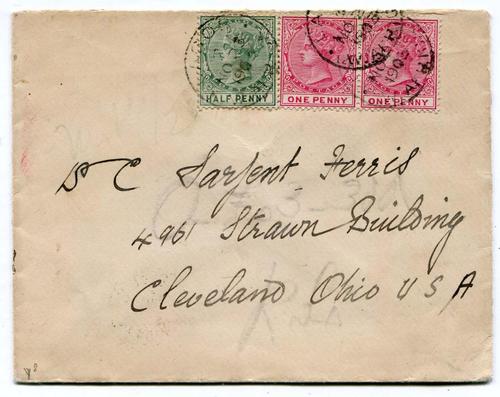 HALF PENNY ONE PENNY ONE PENNY
Dr C Sargent Ferris
4961 Strawn Building
Cleveland Ohio U S A